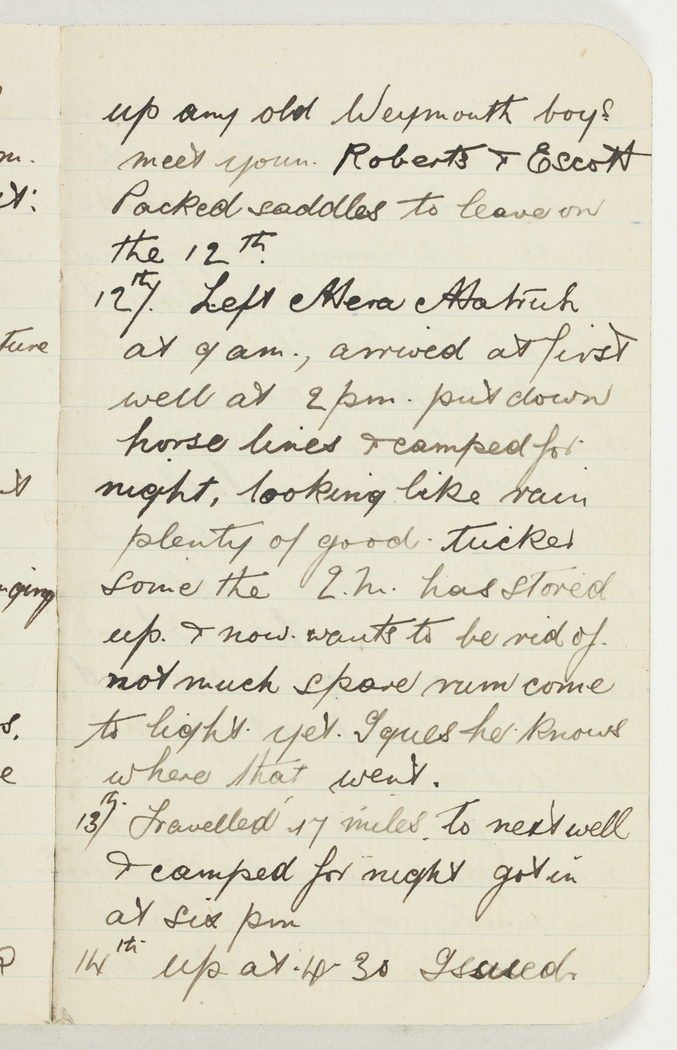 up any old Weymouth boys
meet youn. Roberts & Escott
Packed saddles to leave on
the 12th.
12th/. Left Mera Matruh
at 9 am., arrived at first
well at 2 pm. put down
horse lines & camped for
night, looking like rain
plenty of good tucker
some the Q.M. has stored
up. & now wants to be rid of.
not much spare rum come
to light yet. I gues he knows
where that went.
13th/ Travelled 17 miles to next well
& camped for night got in
at six pm
14th up at 4-30 Issued.
m.
it:
ture
nging
s.
e